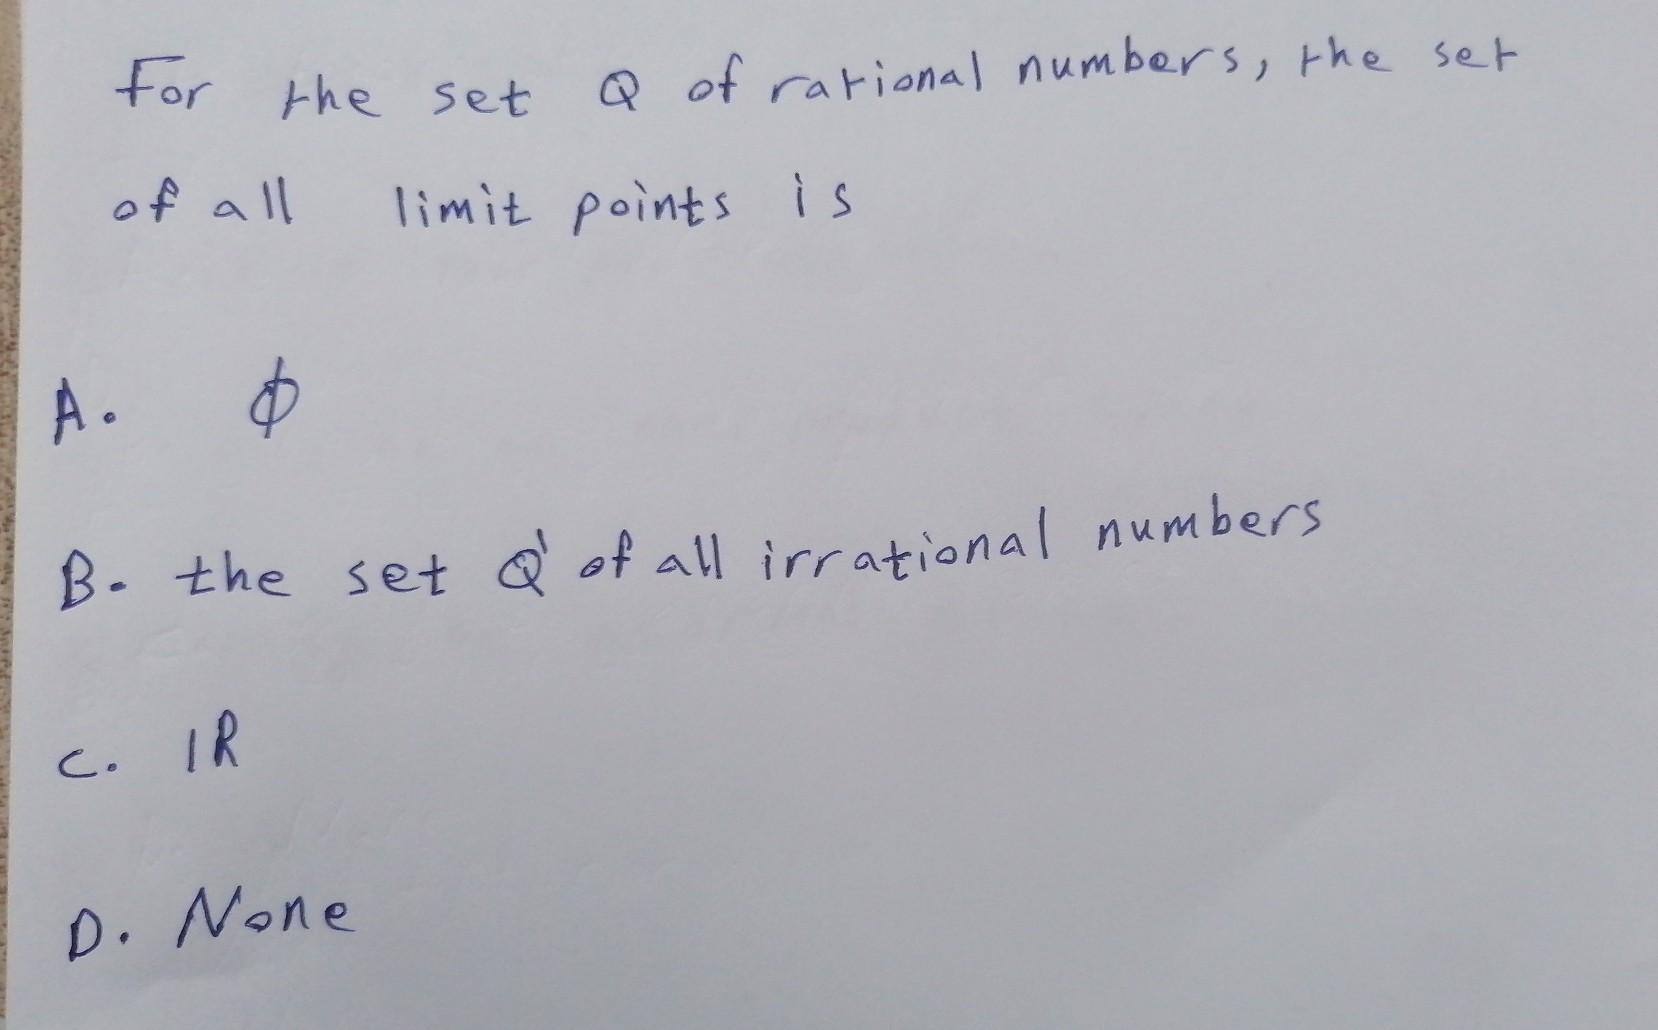 For the set Q of rational numbers, the set
of all limit points is
A. ϕ
B. the set Q' of all irrational numbers
C. IR
D. None